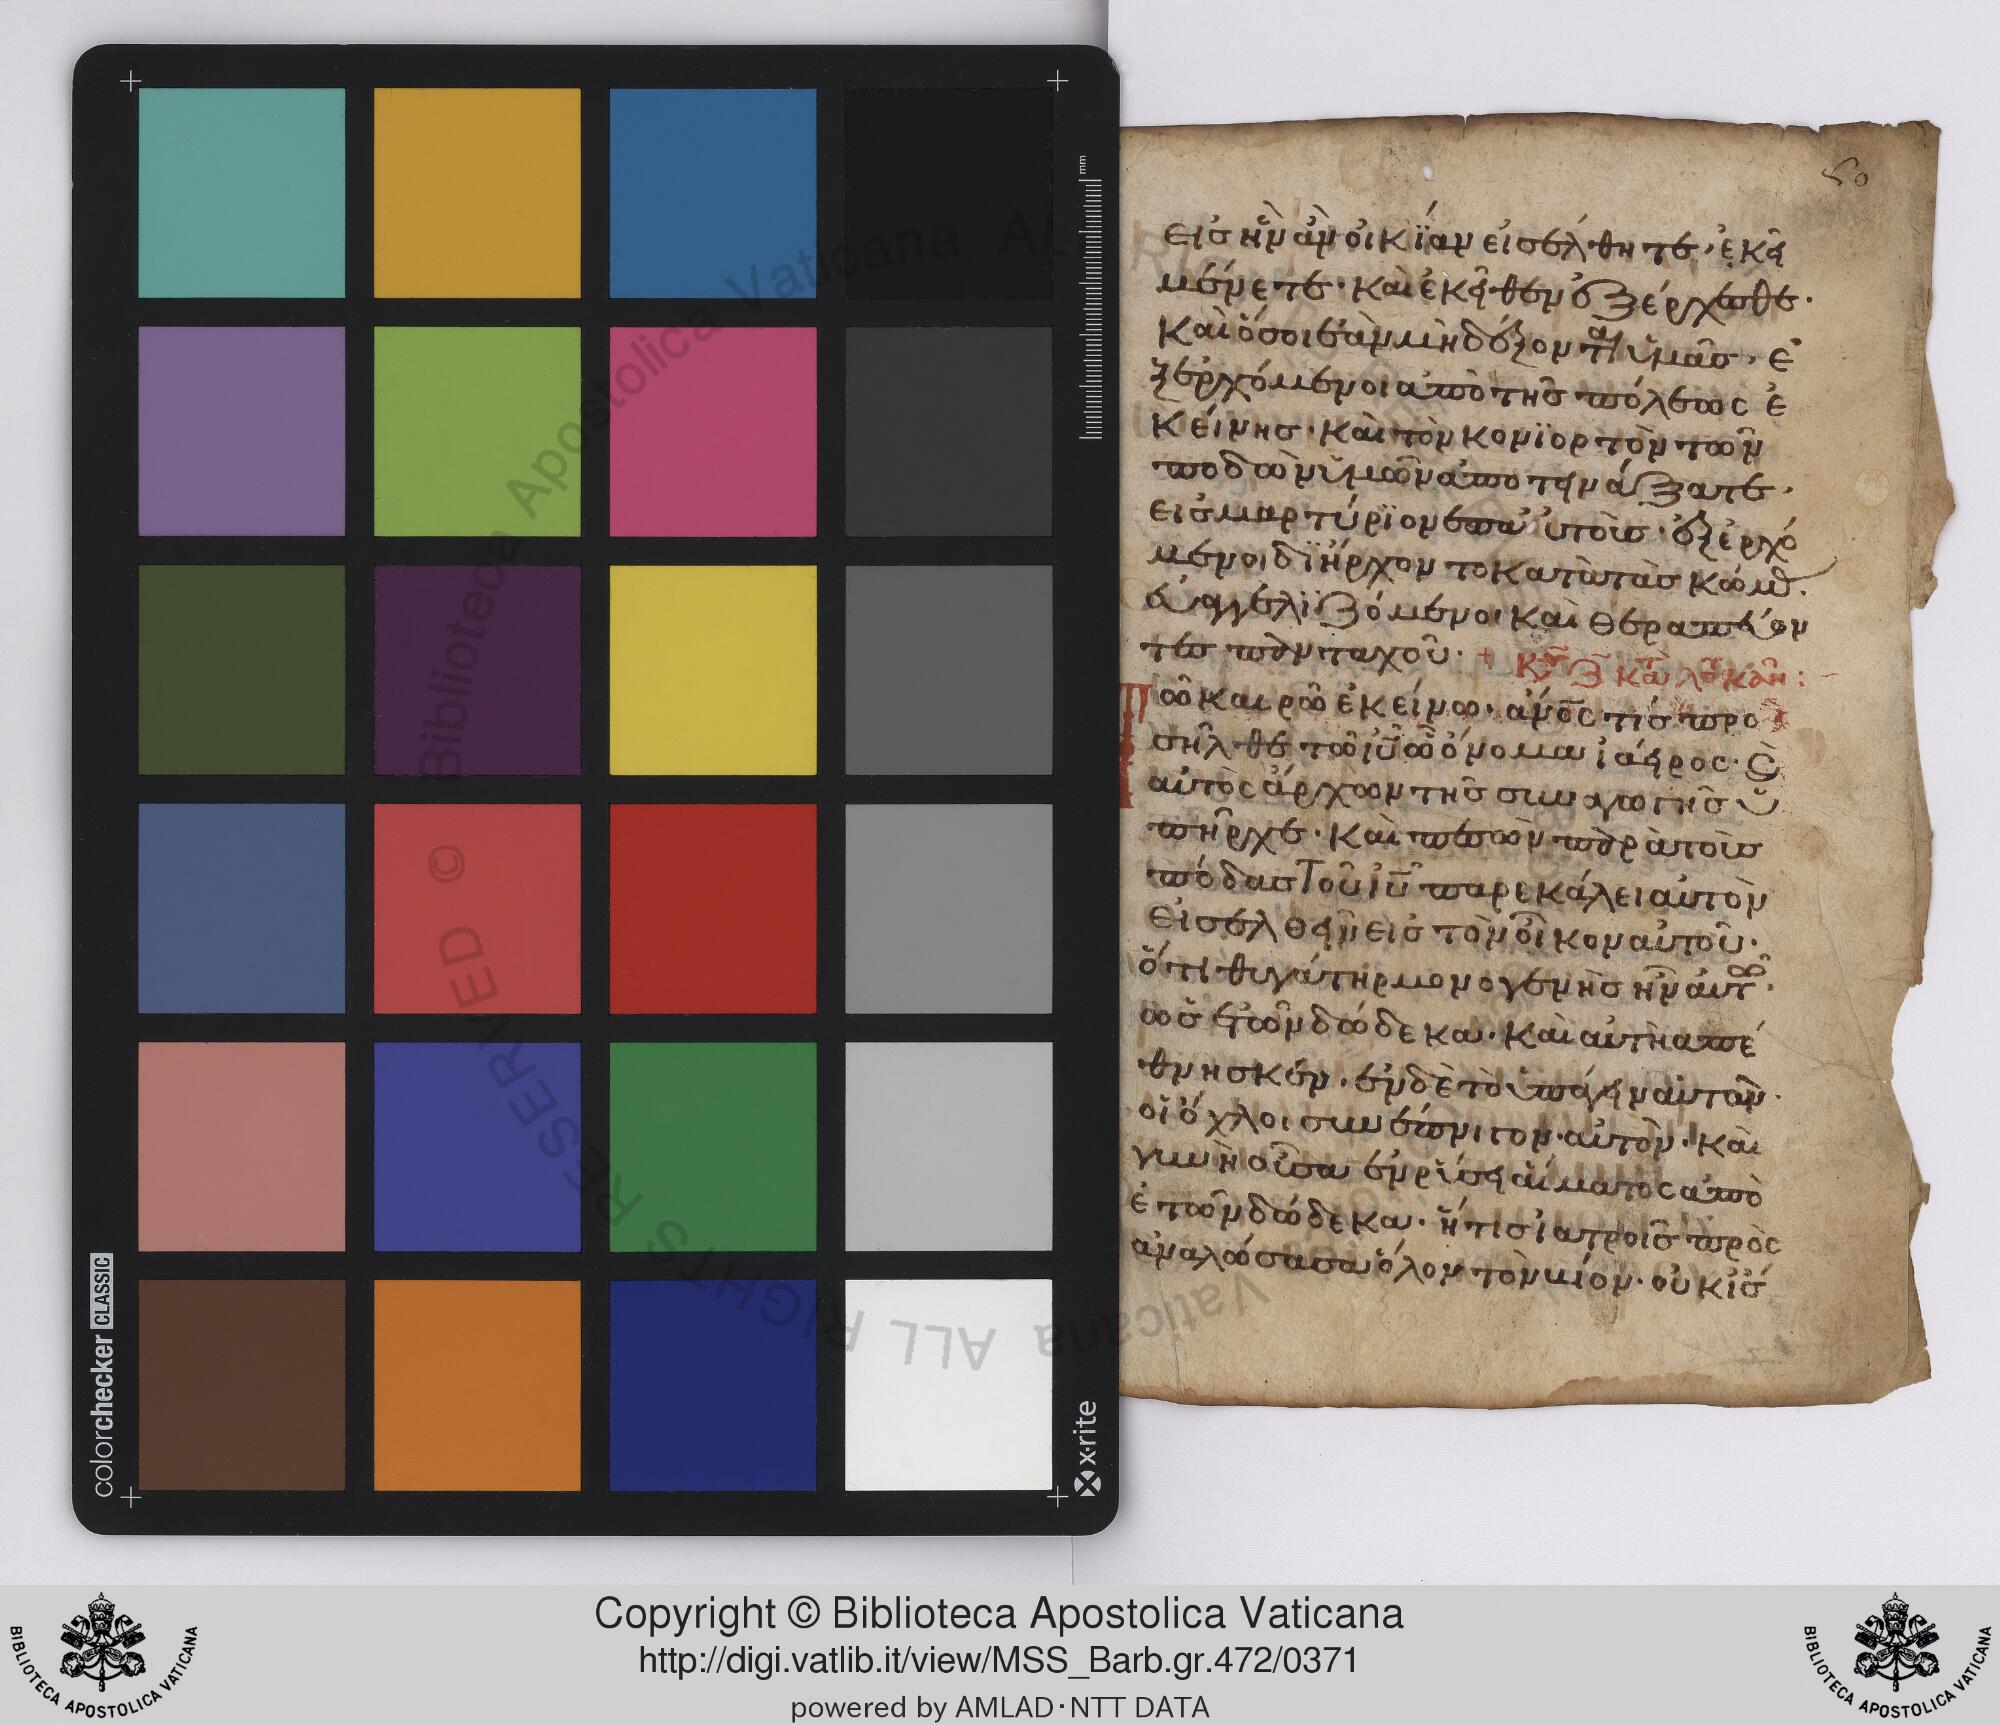 60
εἰσ ἣν ἂν οἰκΐαν εἰσέλθητε· ἐκεῖ
μένετε· καὶ ἐκεῖθεν ἐξέρχεσθε·
καὶ ὅσοι ἐὰν μὴ δέξονται ὑμᾶσ· ἐ
ξερχόμενοι ἀπὸ τῆσ πόλεως ἐ
κείνησ· καὶ τὸν κονϊορτὸν τῶν
ποδῶν ὑμῶν ἀποτεινάξατε·
εἰσ μαρτύρϊον ἐπ' αὐτοῖσ· ἐξερχό
μενοι δϊήρχοντο κατὰ τὰσ κώμ
εὐαγγελϊζόμενοι καὶ θεραπεύον
τεσ πανταχοῦ·
Τῶ καιρῶ ἐκείνω· ἀν̅ος τίσ προ
σῆλθε τῶ ἰ̅υ̅ ὧ ὄνομα ἰάειρος· ϗ
αὐτὸς ἄρχων τῆσ συναγωγῆσ ὑ
πῆρχε· καὶ πεσὼν παρὰ τοὺσ
πόδασ τοῦ ἰ̅υ̅ παρεκάλει αὐτὸν
εἰσελθεῖν εἰσ τὸν οἶκον αὐτοῦ·
ὅτι θυγάτηρ μονογενὴσ ἦν αὐτῶ·
ὡσ ἐτῶν δώδεκα· καὶ αὐτὴ ἀπέ
θνησκεν· ἐν δὲ τὸ ὑπάγειν αὐτὸν·
οἱ ὄχλοι συνέπνιγον αὐτὸν· καὶ
γυνὴ οὖσα ἐν ῥύσει αἵματος ἀπὸ
ἐτῶν δώδεκα· ἥτισ ἰατροῖσ προς
αναλώσασα ὅλον τὸν βίον· οὐκ ἴσ
colorchecker CLASSIC
x·rite
mm
Biblioteca Apostolica Vaticana ALL RIGHTS RESERVED ©
Copyright © Biblioteca Apostolica Vaticana
http://digi.vatlib.it/view/MSS_Barb.gr.472/0371
powered by AMLAD·NTT DATA
BIBLIOTECA APOSTOLICA VATICANA
BIBLIOTECA APOSTOLICA VATICANA